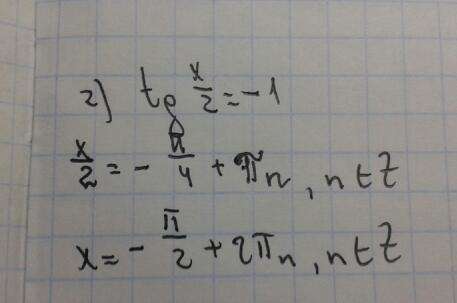 2) tg x/2 = -1
x/2 = - π/4 + πn, n ∈ Z
x = - π/2 + 2πn, n ∈ Z